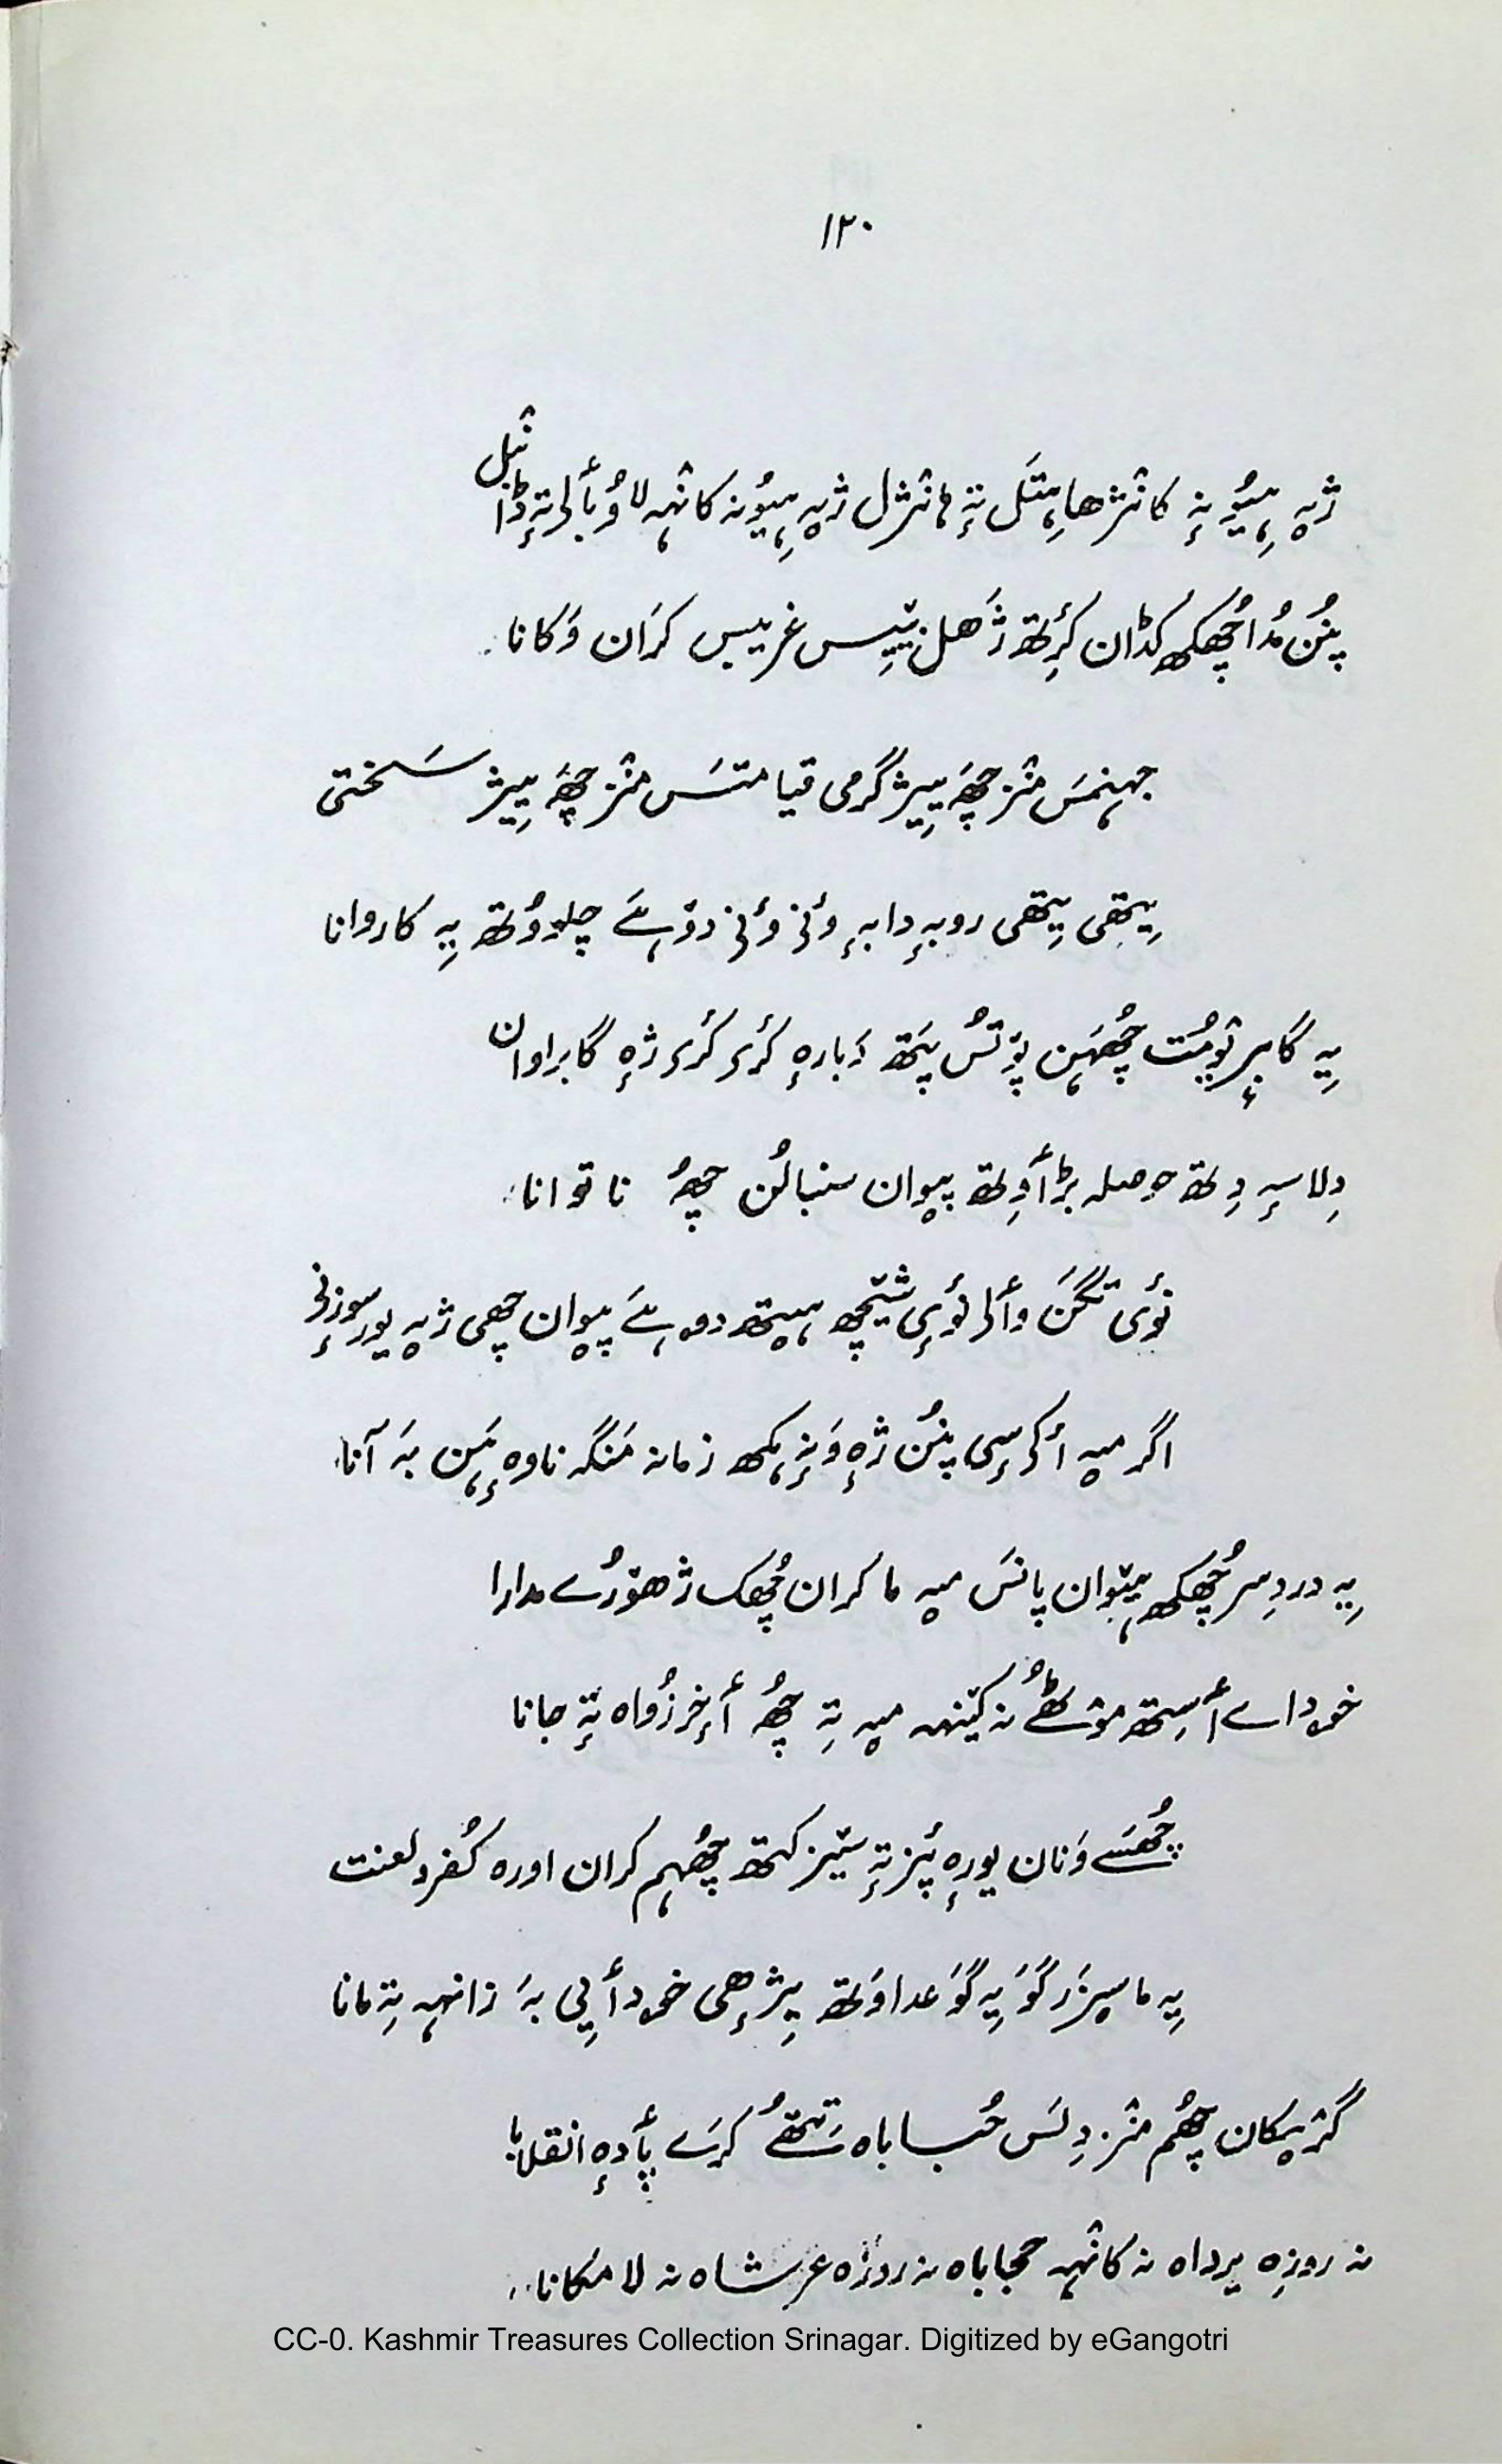 ۱۲۰
ژٕہ ہیوٗنہٕ کانٛژھا ہتَل تہٕ ژٕہ ہیوٗنہ کانٛہہ لاوُبألی تہٕ
پنُن مُدا چُھکھ کڈان کٔرِتھ ژَھل غریبس کرَان وَکانا
جہنمَس منٛز چَھہٕ یِیژ گرمی قیامتَس منٛز چَھہٕ یِیژ سَختی
یِیتھی یِیتھی روبہٕ دابہٕ ؤنۍ ؤنۍ دۄہے چلووُتھ یہِ کاروانا
یہِ گابرٕیومُت چُھہن پۆتُس پَتھ دَبارہٕ کٔرۍ کٔرۍ ژٕہ گابراوان
دِلاسہٕ دِتھ حوصلہ بڑٲوِتھ پیوان سنبالُن چھُہ ناتوانا
پیوان چھی ژٕہ یور سوزنۍ
اگر میہ پنُن ژٕہ زمانہ مَنگہ ناوہٕ ہَن بہَ آنا
یہِ دردِ سر چُھکھ ہیٚوان پانَس میہ ما کران چُھک ژھۆرُے مدارا
خوداے ٲسِتھ مۆٹھُے نہ کینٛہہ میہ تہِ چھُہ ٲخِر زُواہ تہٕ جانا
چُھسَے وَنان یورٕہ پٔز تہٕ سیٚز کتھ چُھہم کران اورہ کُفر و لعنت
یہِ ما سپزَر گوَ یہِ گوَ عداوَتھ پرٕژھی خودٲیی بہَ زانہہ تہِ مانا
گنٛریکان چُھم منٛز دِلَس حُباباہ تَتھُے کرَے پٲدہٕ انقلابا
نہ روزِہ پرداہ نہ کانٛہہ حجاباہ نہ روزِہ عرشاہ نہ لامکانا
CC-0. Kashmir Treasures Collection Srinagar. Digitized by eGangotri